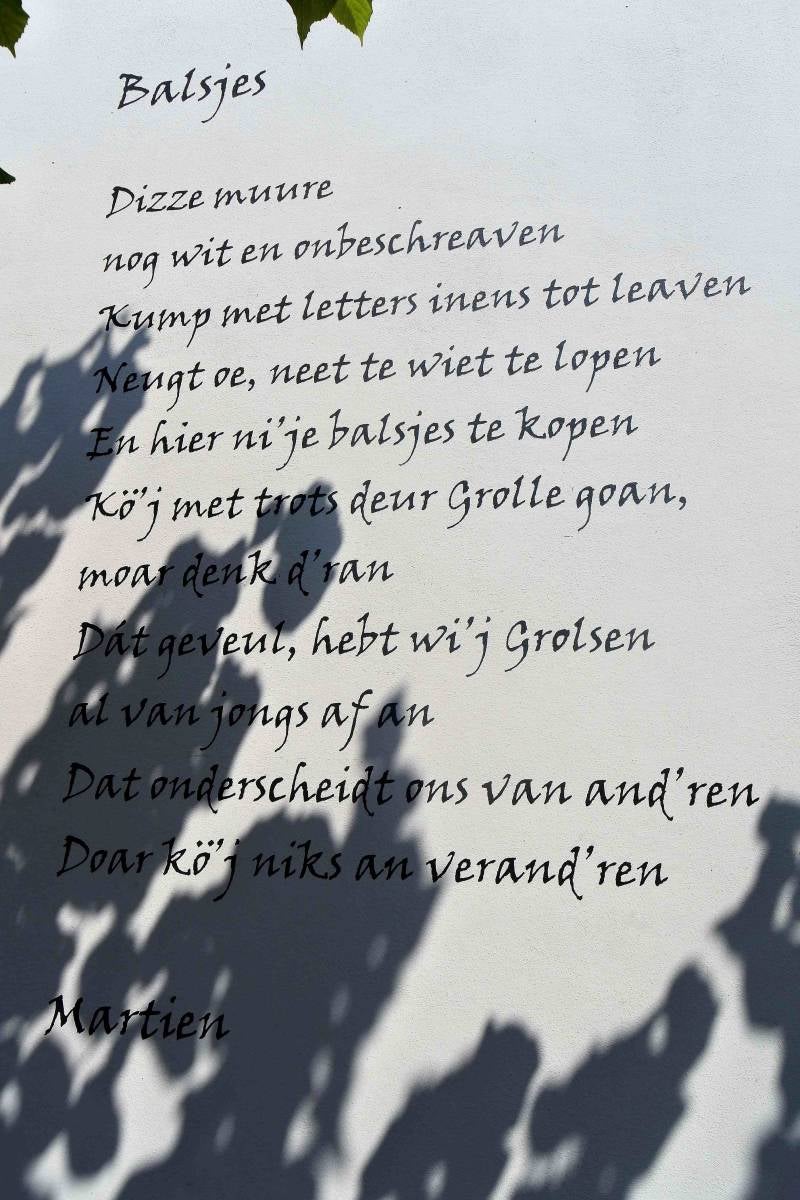 Balsjes
Dizze muure
nog wit en onbeschreaven
Kump met letters inens tot leaven
Neugt oe, neet te wiet te lopen
En hier ni'je balsjes te kopen
Kö'j met trots deur Grolle goan,
moar denk d'ran
Dát geveul, hebt wi'j Grolsen
al van jongs af an
Dat onderscheidt ons van and'ren
Doar kö'j niks an verand'ren
Martien